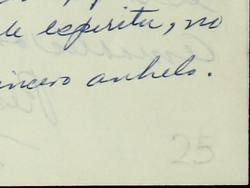 de espiritu, no
sincero anhelo.
25